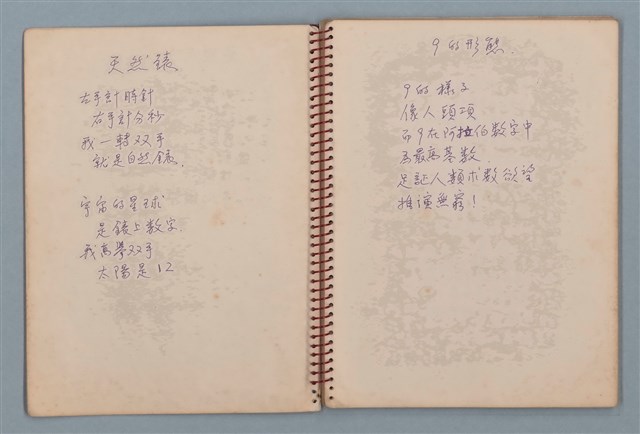 天然錶
左手計時針
右手計分秒
我一轉双手
就是自然錶.
宇宙的星球
是錶上数字
我高舉双手
太陽是12
9的形態.
9的樣子
像人頭項
而9在阿拉伯数字中
為最高基数
足証人類求数欲望
推演無窮!